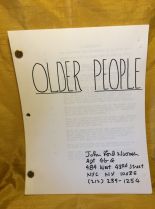 OLDER PEOPLE
John Ford Noonan
APT 56 G
484 West 43rd Street
NYC NY 10036
(212) 239-1254